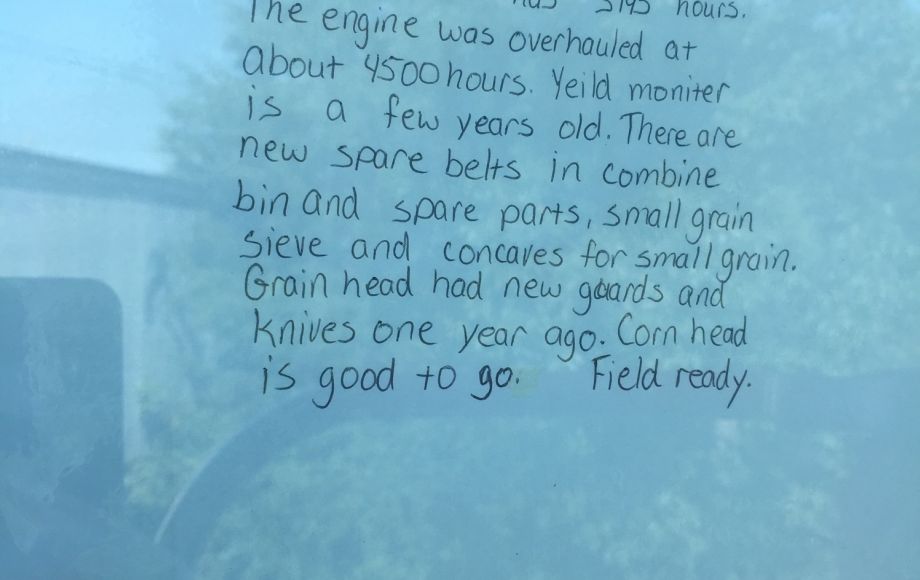 hours.
The engine was overhauled at
about 4500 hours. Yeild moniter
is a few years old. There are
new spare belts in combine
bin and spare parts, small grain
sieve and concaves for small grain.
Grain head had new guards and
knives one year ago. Corn head
is good to go. Field ready.